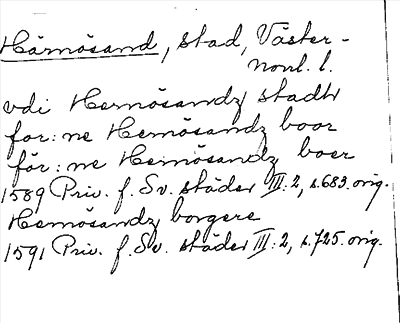 Härnösand, stad, Väster-
norrl. l.
vdi Hernösandz stadh
for:ne Hernösandz boor
för:ne Hernösandz boer
1589 Priv. f. Sv. städer III:2, s.683. orig.
Hernösandz borgere
1591 Priv. f. Sv. städer III:2, s.725. orig.